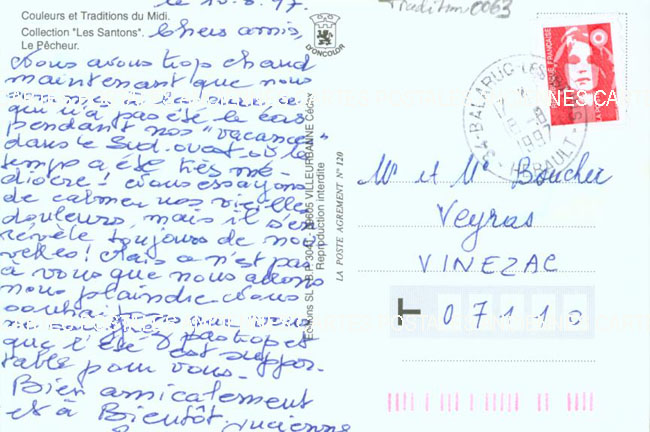 le 18.8.97
Tradition 0063
Couleurs et Traditions du Midi.
Collection "Les Santons".
Le Pêcheur.
D'ONCOLOR
Chers amis,
Nous avons trop chaud
maintenant que nous
qui n'a pas été le cas
pendant nos "vacances"
dans le Sud-ouest où le
temps a été très mé-
diocre! Nous essayons
de calmer nos vieilles
douleurs, mais il s'en
révèle toujours de nou-
velles! Mais ce n'est pas
à vous que nous allons
nous plaindre. Nous
souhai
que l'été est suppor-
table pour vous.
Bien amicalement
et à Bientôt, Lucienne
Editions SL - B.P. 3041 - 69605 VILLEURBANNE Cédex
Reproduction interdite
LA POSTE AGREMENT N° 120
34-BALARUC-LES-
-8
1997
HERAULT
FRANCAISE
LA POSTE
Mr et Me Boucher
Veyras
VINEZAC
T 07110
CARTES POSTALES ANCIENNES CARTES POSTALES ANCIENNES CARTES
CARTES POSTALES ANCIENNES CARTES POSTALES ANCIENNES CARTES